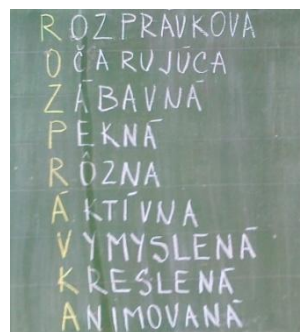 ROZPRAVKOVA
OČARUJÚCA
ZÁBAVNÁ
PEKNÁ
RÔZNA
ÁKTÍVNA
VYMYSLENÁ
KRESLENÁ
ANIMOVANÁ